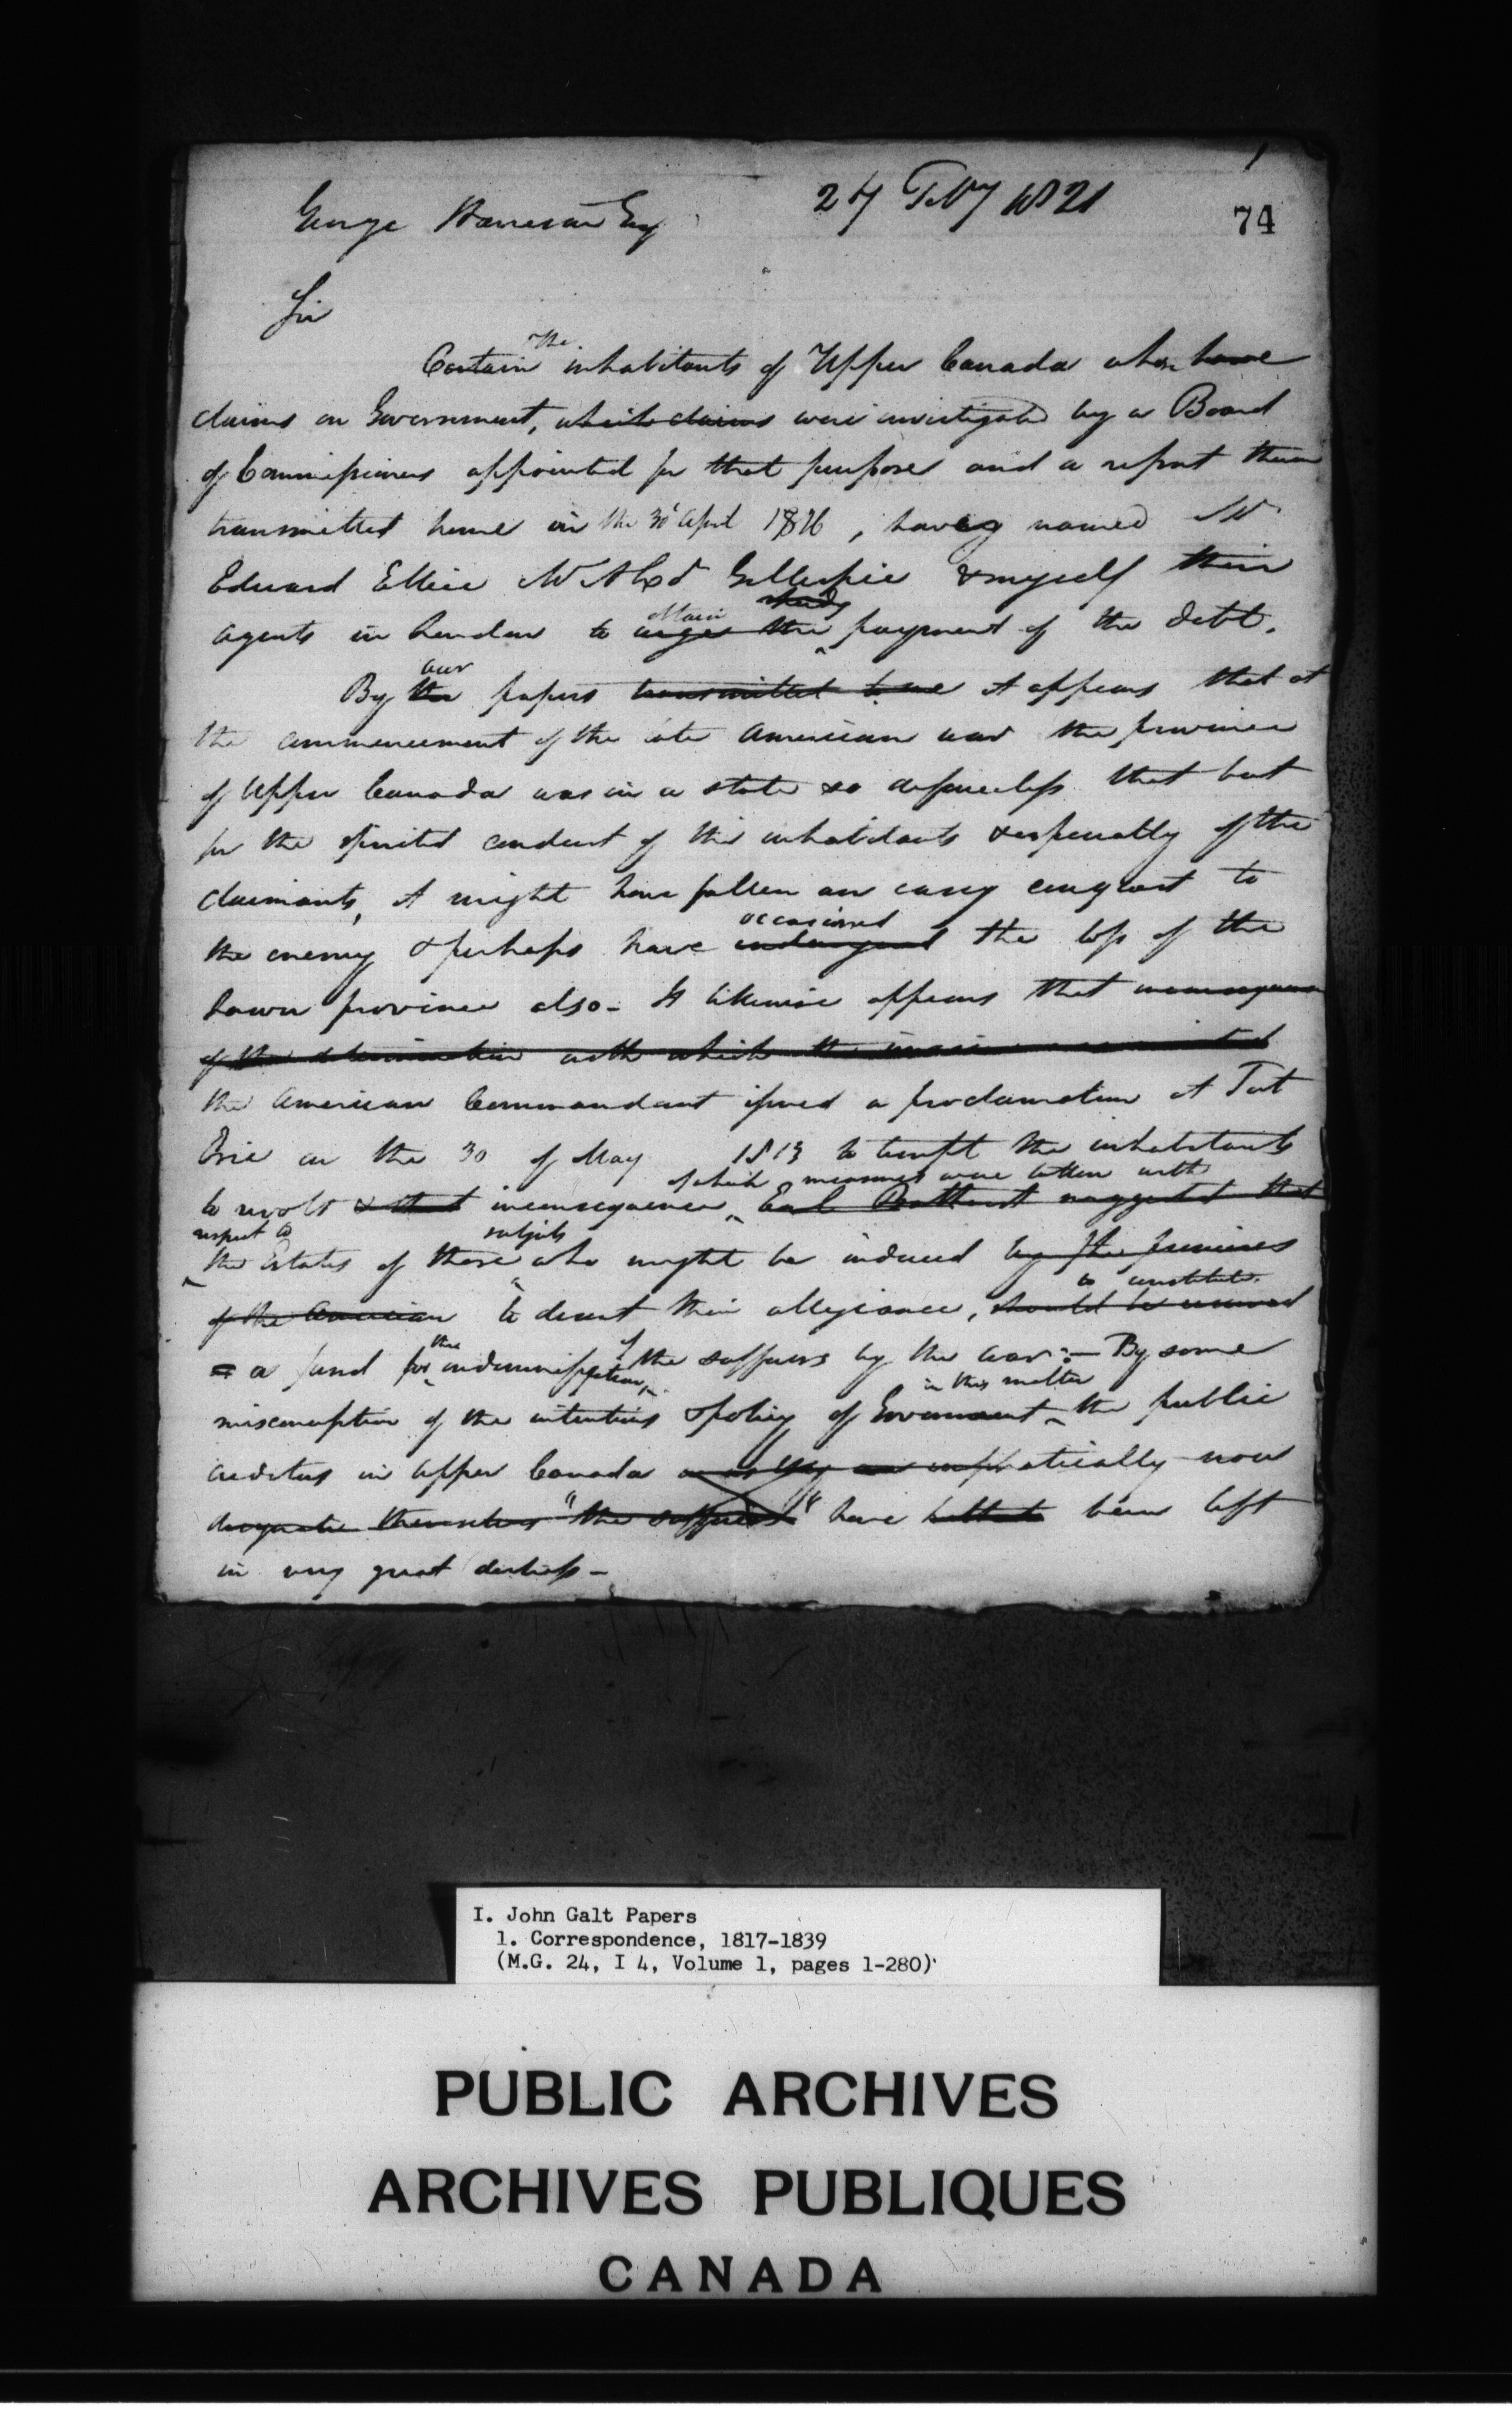 27 Feby 1821
74
George Harrison Esq
Sir
the
Certain inhabitants of Upper Canada whose have
claims on Government, which claims were investigated by a Board
of Commissioners appointed for that purpose and a report thereon
transmitted home on the 30 April 1816, having named Mr
Edward Ellice Mr Alexd Gillespie & myself their
obtain
agents in London to urge the payment of the debt.
our
By the papers transmitted to me it appears that at
the commencement of the late American war the province
of Upper Canada was in a state so defenceless that but
for the spirited conduct of the inhabitants & especially of the
claimants, it might have fallen an easy conquest to
occasioned
the enemy & perhaps have endangered the loss of the
Lower province also - It likewise appears that in consequence
of the determination with which the
the American Commandant issued a proclamation at Fort
Erie on the 30 of May 1813 to tempt the inhabitants
of which measures were taken with
to revolt & that in consequence Earl Bathurst suggested that
respect to subjects
the Estates of those who might be induced by the promises
to constitute
of the American to desert their allegiance, should be
the of
= a fund for indemnification the sufferers by the war :- By some
in this matter
misconception of the intentions & policy of Government the public
creditors in Upper Canada or as they emphatically now
designate themselves "the sufferers" have hitherto been left
in very great distress -
I. John Galt Papers
1. Correspondence, 1817-1839
(M.G. 24, I 4, Volume 1, pages 1-280)
PUBLIC ARCHIVES
ARCHIVES PUBLIQUES
CANADA